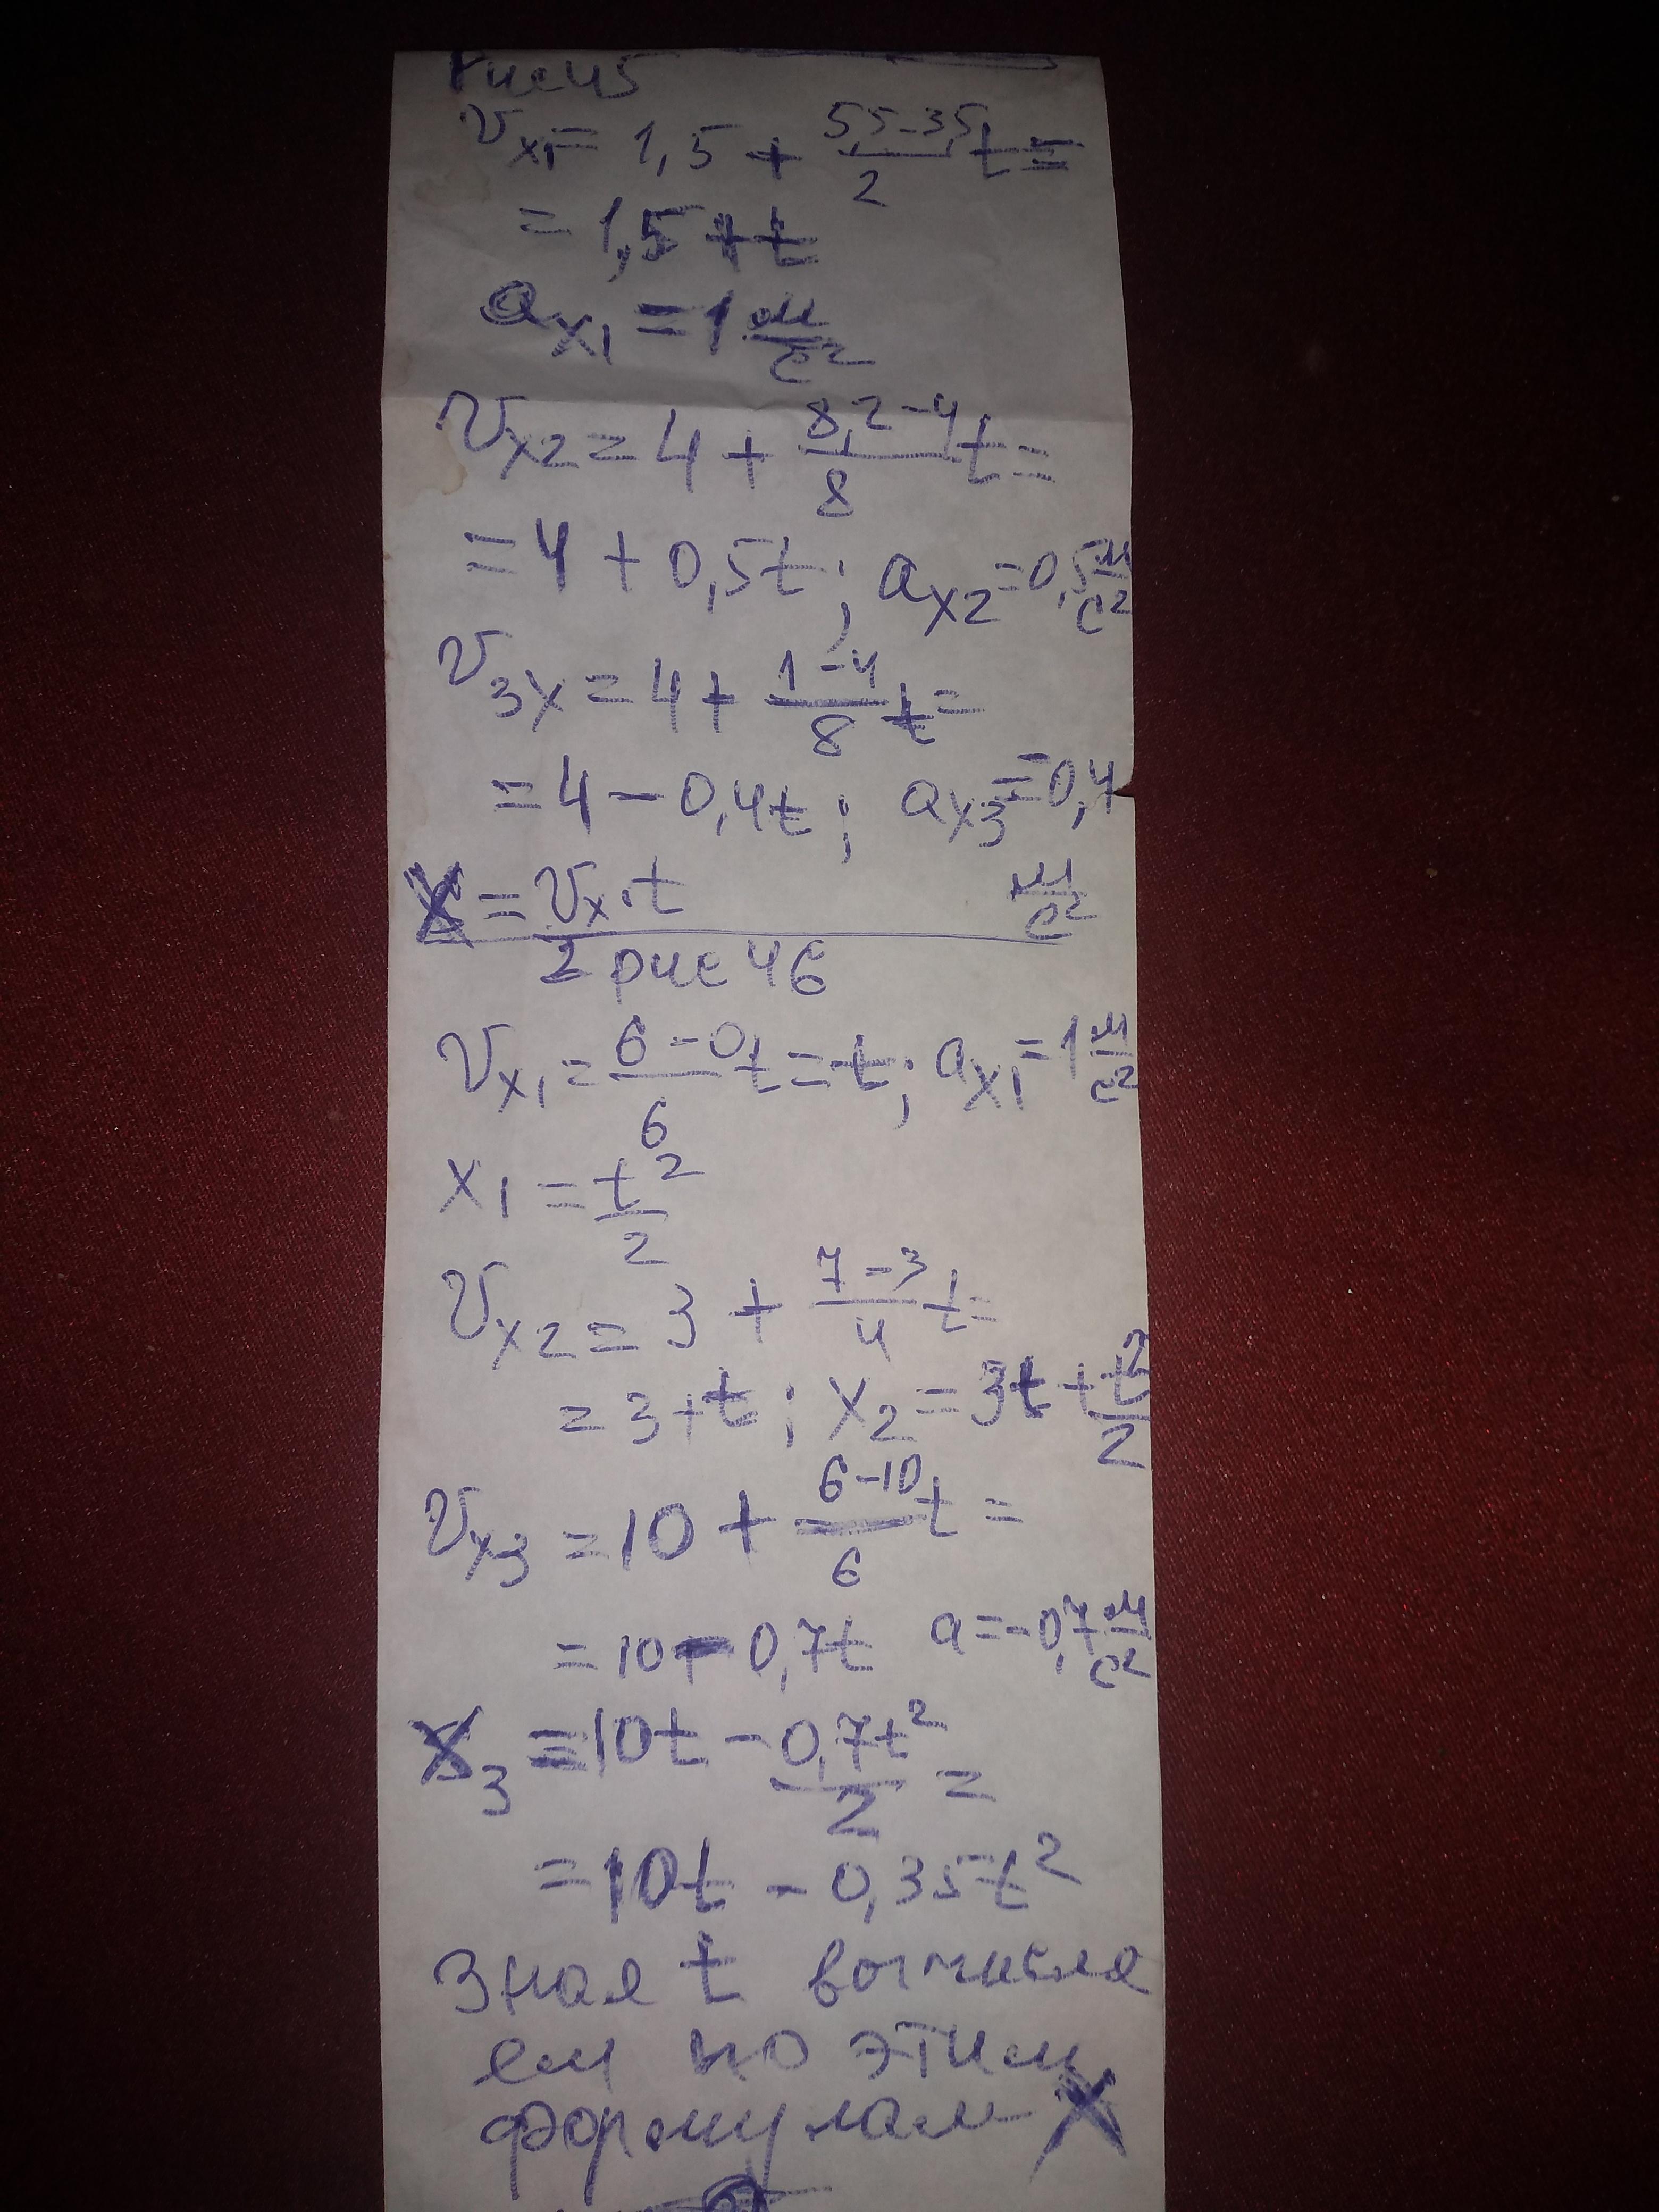 Рис 45
Vx1 = 1,5 + (5,5-3,5)/2 t =
= 1,5 + t
ax1 = 1 м/с²
Vx2 = 4 + (8,2-4)/8 t =
= 4 + 0,5t; ax2 = 0,5 м/с²
V3x = 4 + (1-4)/8 t =
= 4 - 0,4t; ax3 = -0,4 м/с²
X = Vx·t/2
рис 46
Vx1 = (6-0)/6 t = t; ax1 = 1 м/с²
x1 = t²/2
Vx2 = 3 + (7-3)/4 t =
= 3 + t; x2 = 3t + t²/2
Vx3 = 10 + (6-10)/6 t =
= 10 - 0,7t a = -0,7 м/с²
X3 = 10t - 0,7t²/2 =
= 10t - 0,35t²
Зная t вычисля
ем по этим
формулам X